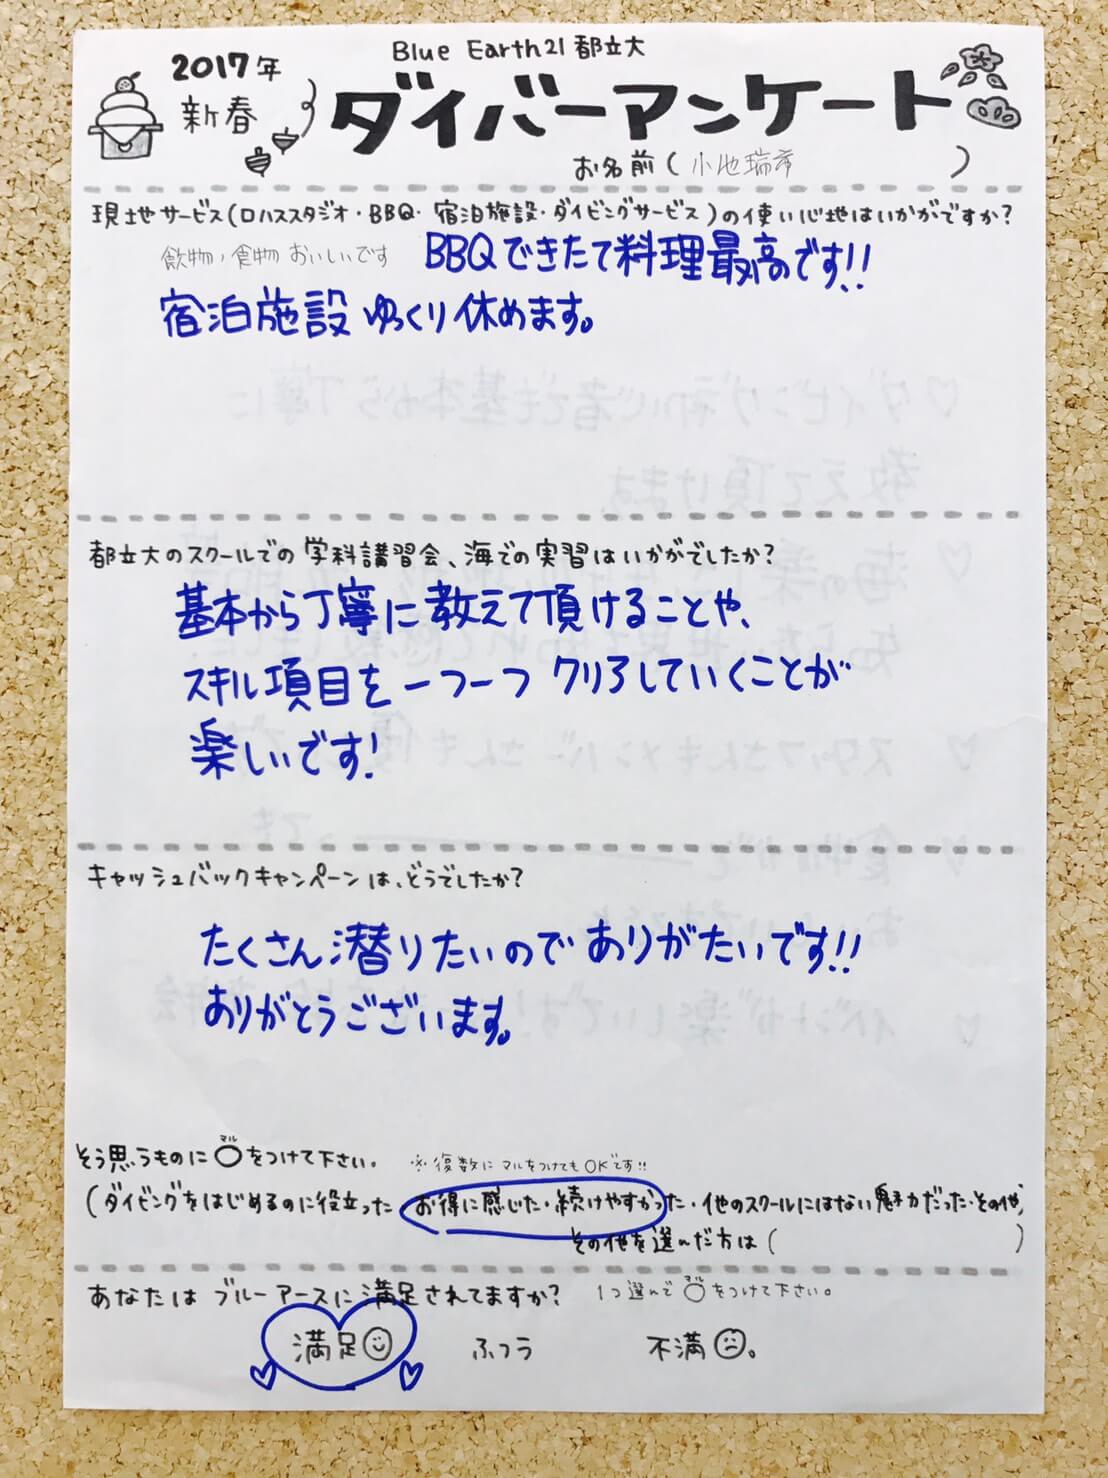 Blue Earth21 都立大
2017年
新春
ダイバーアンケート
お名前( 小池瑞希 )
現地サービス(ロハススタジオ・BBQ・宿泊施設・ダイビングサービス)の使い心地はいかがですか?
飲物・食物 おいしいです BBQできたて料理最高です!!
宿泊施設 ゆっくり休めます。
都立大のスクールでの学科講習会、海での実習はいかがでしたか?
基本から丁寧に教えて頂けることや、
スキル項目を一つ一つクリアしていくことが
楽しいです!
キャッシュバックキャンペーンは、どうでしたか?
たくさん潜りたいのでありがたいです!!
ありがとうございます。
そう思うものに○マルをつけて下さい。 ※復数にマルをつけてもOKです!!
(ダイビングをはじめるのに役立った お得に感じた・続けやすかった・他のスクールにはない魅力だった・その他、
その他を選んだ方は( )
あなたは ブルーアースに満足されてますか? 1つ選んで○マルをつけて下さい。
満足 ふつう 不満 。